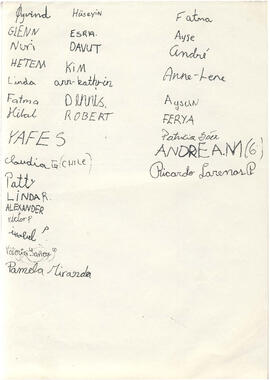 Øyvind Hüseyin Fatma
GLENN ESRA Ayse
Nuri DAVUT André
HETEM KIM
Linda ann-kathrin Anne-Lene
Fatma Aysun
Hilal ROBERT FERYA
Patricia
YAFES ANDRE A.M (6)
Claudia (CHILE) Ricardo Larenas.P
Patty
LINDA R.
ALEXANDER
Victor P
isabel P
Valeria
Pamela Miranda